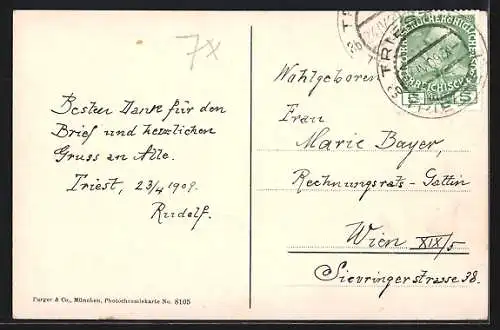 7x
Besten Dank für den
Brief und herzlichen
Gruss an Alle.
Triest, 23/4 1909.
Rudolf.
Wohlgeboren
Frau
Marie Bayer,
Rechnungsrats-Gattin
Wien XIX/5
Sieveringerstrasse 38.
Purger & Co., München, Photochromiekarte No. 8105
TRIEST